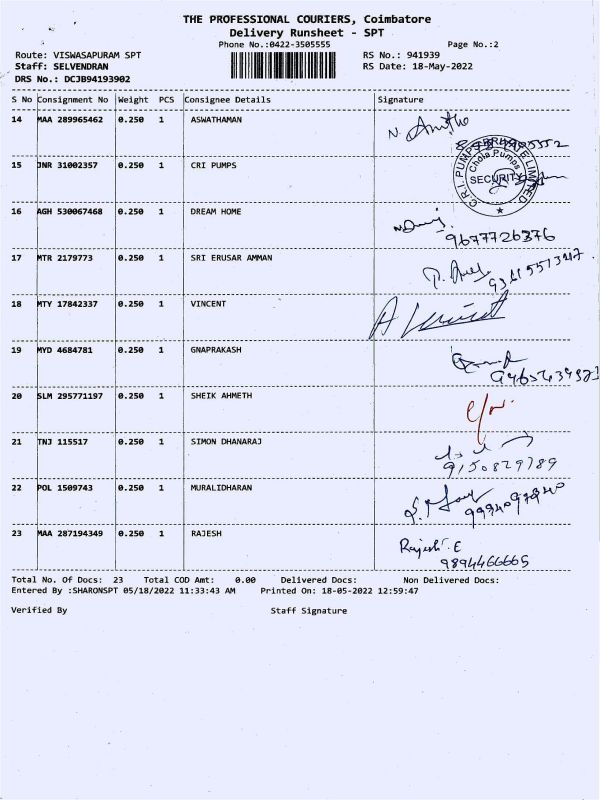 THE PROFESSIONAL COURIERS, Coimbatore
Delivery Runsheet - SPT
Phone No.:0422-3505555 Page No.:2
Route: VISWASAPURAM SPT RS No.: 941939
Staff: SELVENDRAN RS Date: 18-May-2022
DRS No.: DCJB94193902
S No Consignment No Weight PCS Consignee Details Signature
14 MAA 289965462 0.250 1 ASWATHAMAN
15 JNR 31002357 0.250 1 CRI PUMPS
C.R.I. PUMPS PRIVATE LIMITED
Chola Pumps
SECURITY
16 AGH 530067468 0.250 1 DREAM HOME
9677726376
17 MTR 2179773 0.250 1 SRI ERUSAR AMMAN
18 MTY 17842337 0.250 1 VINCENT
19 MYD 4684781 0.250 1 GNAPRAKASH
20 SLM 295771197 0.250 1 SHEIK AHMETH
21 TNJ 115517 0.250 1 SIMON DHANARAJ
9150829789
22 POL 1509743 0.250 1 MURALIDHARAN
23 MAA 287194349 0.250 1 RAJESH Rajesh. E
9894466665
Total No. Of Docs: 23 Total COD Amt: 0.00 Delivered Docs: Non Delivered Docs:
Entered By :SHARONSPT 05/18/2022 11:33:43 AM Printed On: 18-05-2022 12:59:47
Verified By Staff Signature